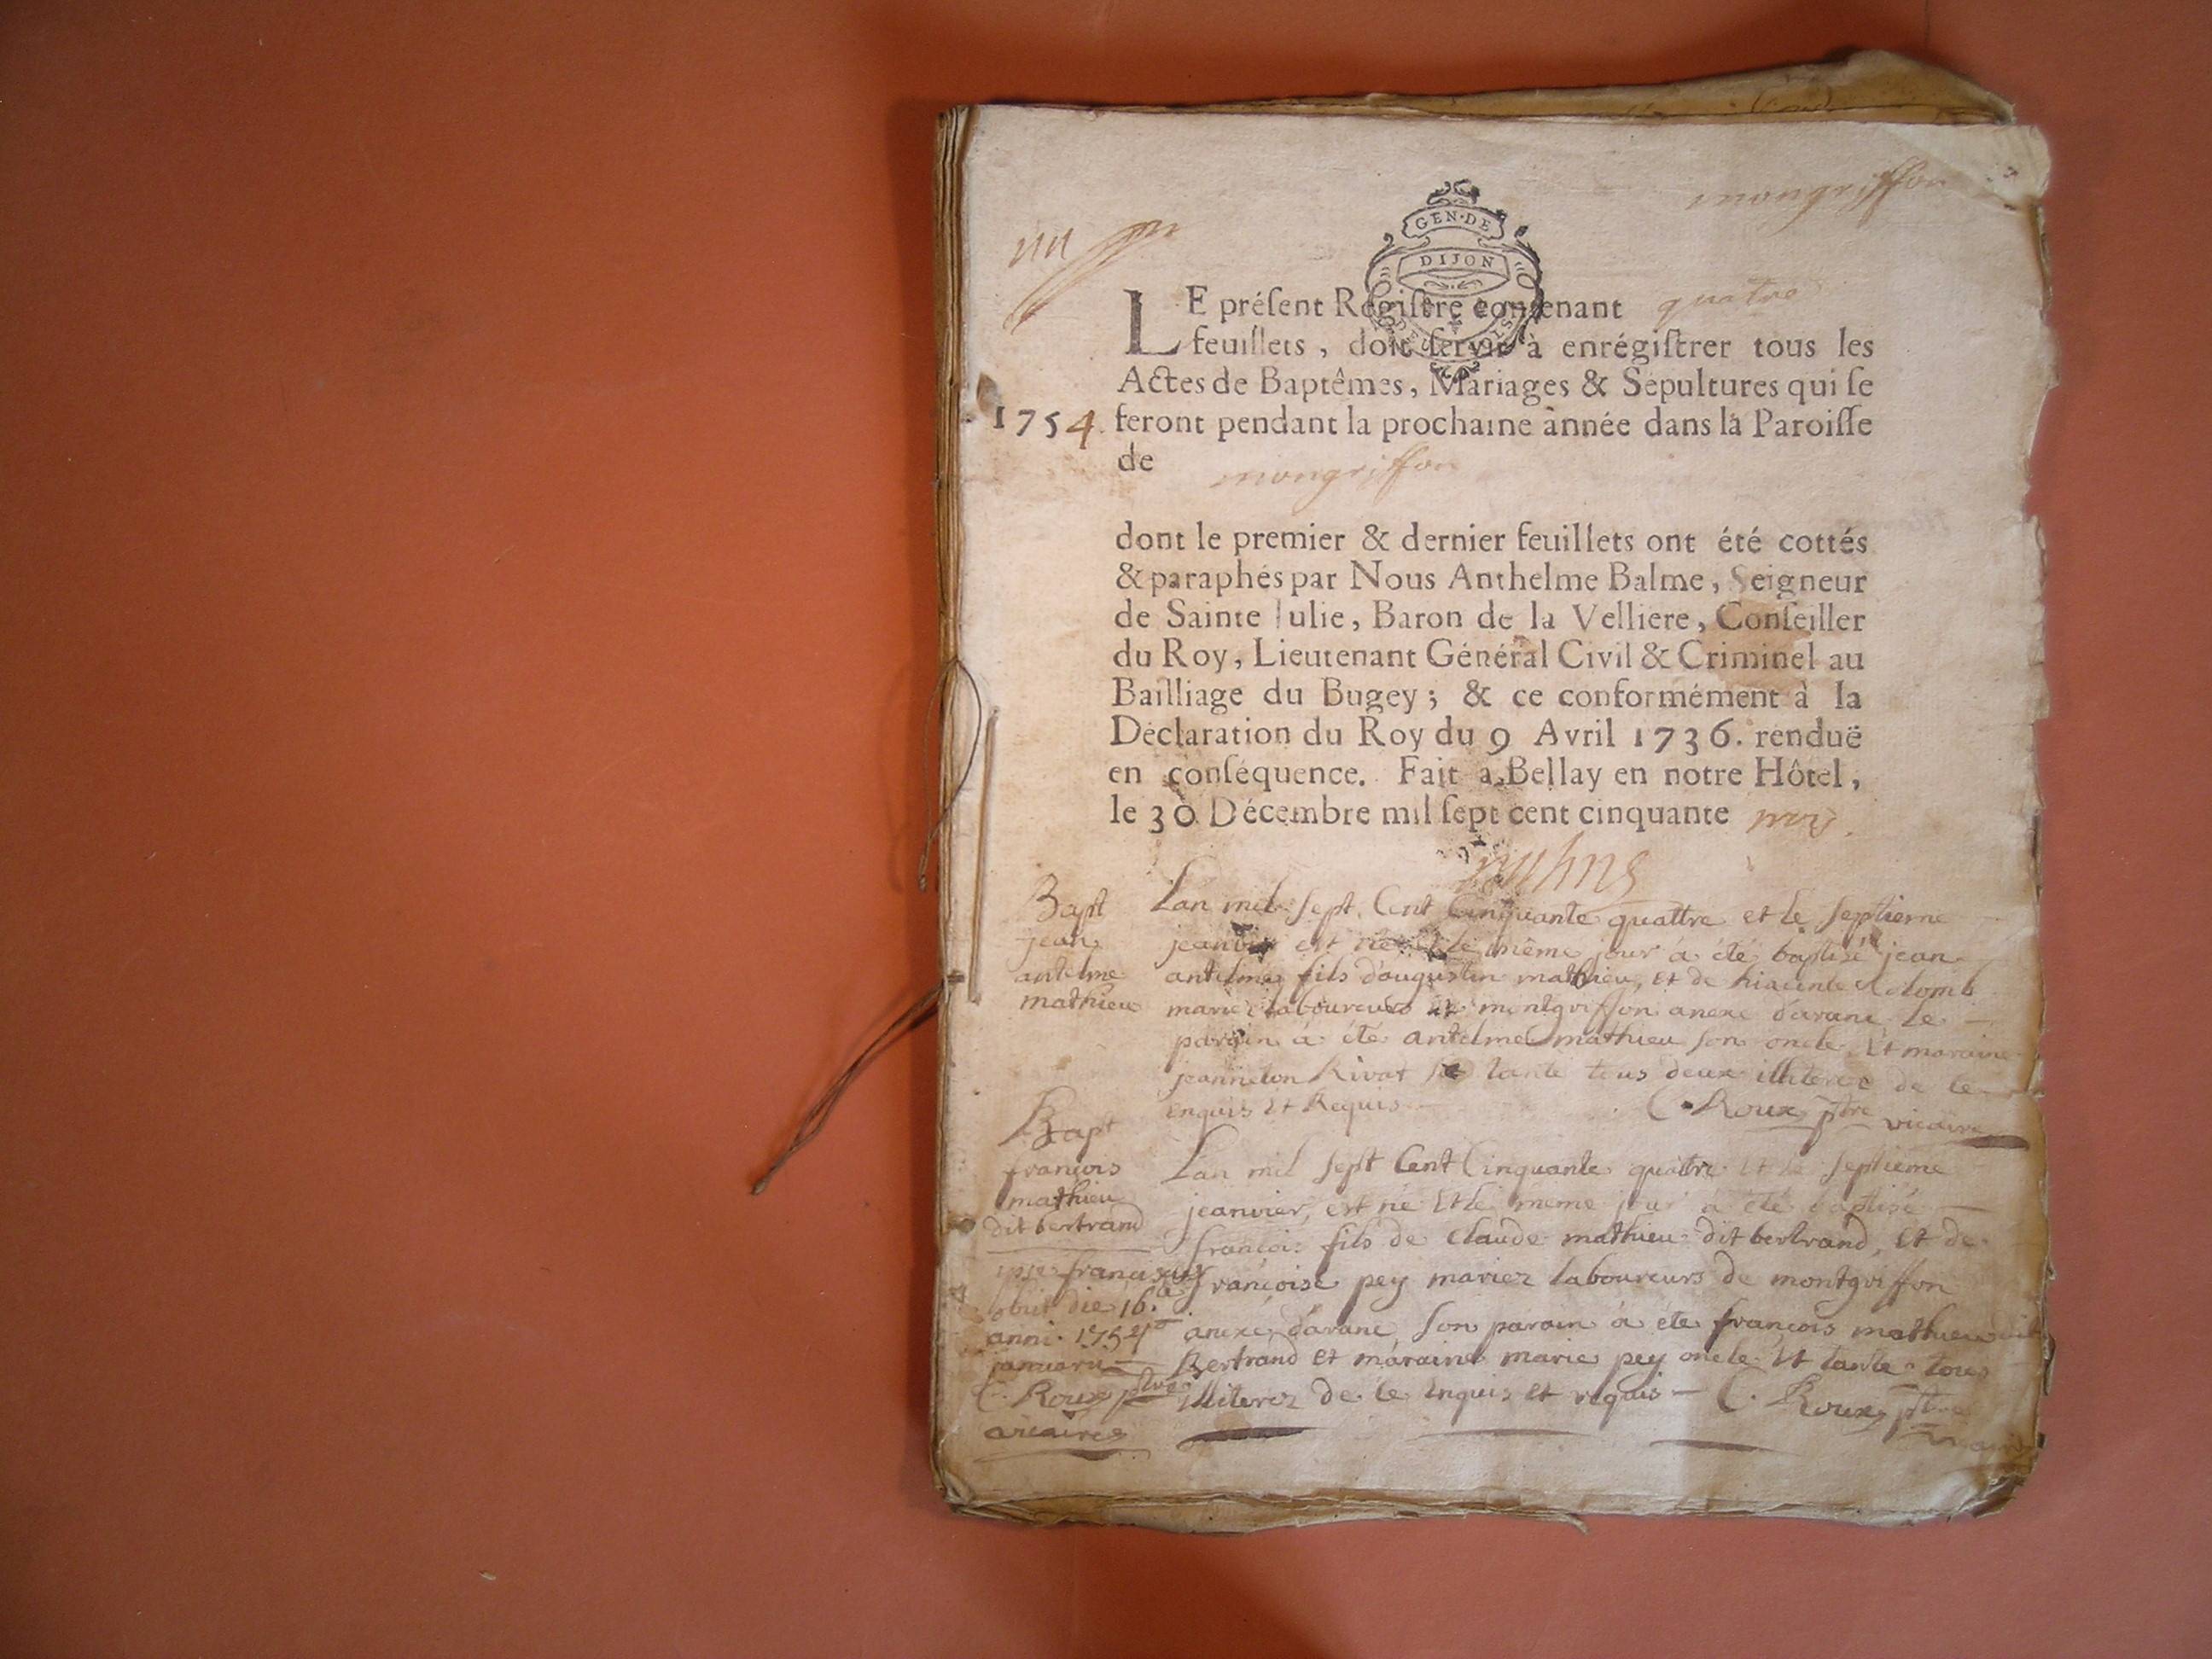 mongriffon
un
GEN·DE
DIJON
LE préſent Regiſtre contenant quatre
feuillets, doit ſervir à enrégiſtrer tous les
Actes de Baptêmes, Mariages & Sépultures qui ſe
1754. feront pendant la prochaine année dans la Paroiſſe
de mongriffon
dont le premier & dernier feuillets ont été cottés
& paraphés par Nous Anthelme Balme, Seigneur
de Sainte Julie, Baron de la Velliere, Conſeiller
du Roy, Lieutenant Général Civil & Criminel au
Bailliage du Bugey; & ce conformément à la
Déclaration du Roy du 9 Avril 1736. renduë
en conſéquence. Fait a Bellay en notre Hôtel,
le 30 Décembre mil ſept cent cinquante
Bapt
jean
antelme
mathieu
Lan mil sept Cent Cinquante quattre et le septieme
jeanvier est né et le même jour à été baptisé jean
antelme fils d'augustin mathieu, et de hiacinte Colomb
mariez laboureurs de montgriffon anexe d'aranc le
parain à été antelme mathieu son oncle, et maraine
jenneton Rivat sa tante tous deux illiterez de le
enquis et Requis C. Roux ptre vicaire
Bapt
françois
mathieu
dit bertrand
ipse franciscus
obiit die 16a
anni 1754to
januarii
C. Roux ptre
vicaire
Lan mil sept Cent Cinquante quattre et le septieme
jeanvier, est né et le meme jour à été baptisé
françois fils de Claude mathieu dit bertrand, et de
françoise pey mariez laboureurs de montgriffon
anexe d'aranc, son parain à été françois mathieu dit
Bertrand et maraine marie pey oncle et tante tous
illiterez de le enquis et requis C. Roux ptre
vicaire